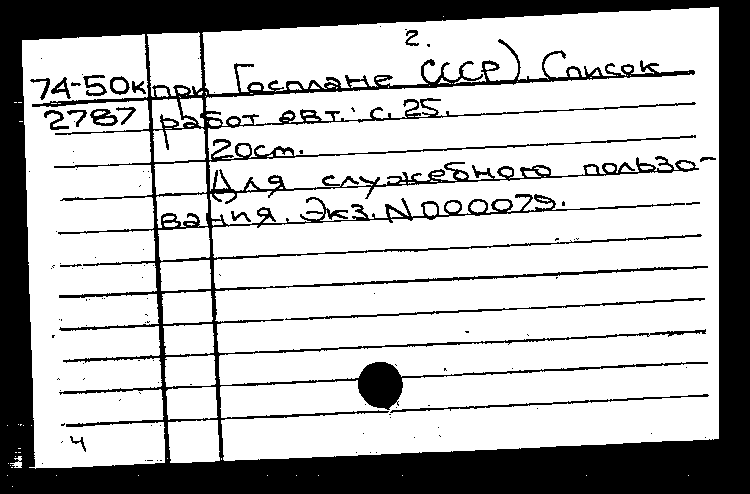 2.
74-50к при Госплане СССР). Список
2787 работ авт.: с. 25.
20см.
Для служебного пользо-
вания. Экз. N000079.
4